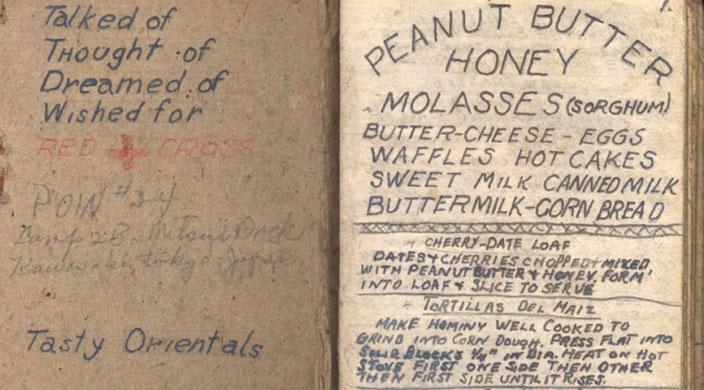 Talked of
Thought of
Dreamed of
Wished for
RED CROSS
POW #24
Camp 2B. Mitsui Dock
Kawasaki, Tokyo, Japan
Tasty Orientals
1.
PEANUT BUTTER
HONEY
MOLASSES (SORGHUM)
BUTTER-CHEESE-EGGS
WAFFLES HOT CAKES
SWEET MILK CANNED MILK
BUTTERMILK-CORN BREAD
CHERRY-DATE LOAF
DATES & CHERRIES CHOPPED & MIXED
WITH PEANUT BUTTER & HONEY. FORM
INTO LOAF & SLICE TO SERVE
TORTILLAS DEL MAIZ
MAKE HOMINY WELL COOKED TO
GRIND INTO CORN DOUGH. PRESS FLAT INTO
BLOCKS 1/4" IN DIA. HEAT ON HOT
STOVE FIRST ONE SIDE THEN OTHER
THEN FIRST SIDE UNTIL IT RISES.